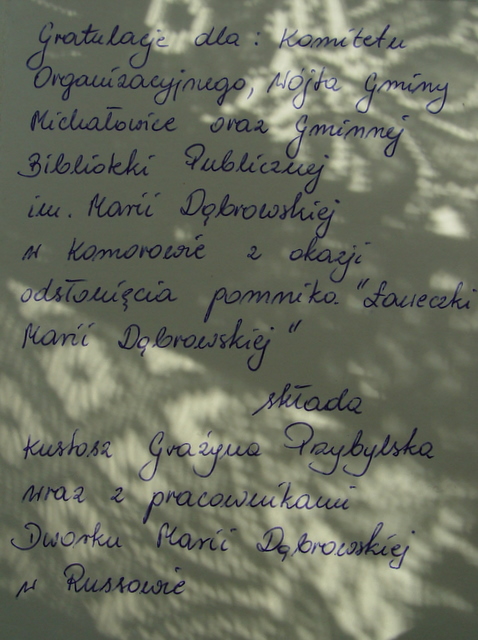 Gratulacje dla: Komitetu
Organizacyjnego, Wójta Gminy
Michałowice oraz Gminnej
Biblioteki Publicznej
im. Marii Dąbrowskiej
w Komorowie z okazji
odsłonięcia pomnika "Ławeczki
Marii Dąbrowskiej"
składa
Kustosz Grażyna Przybylska
wraz z pracownikami
Dworku Marii Dąbrowskiej
w Russowie